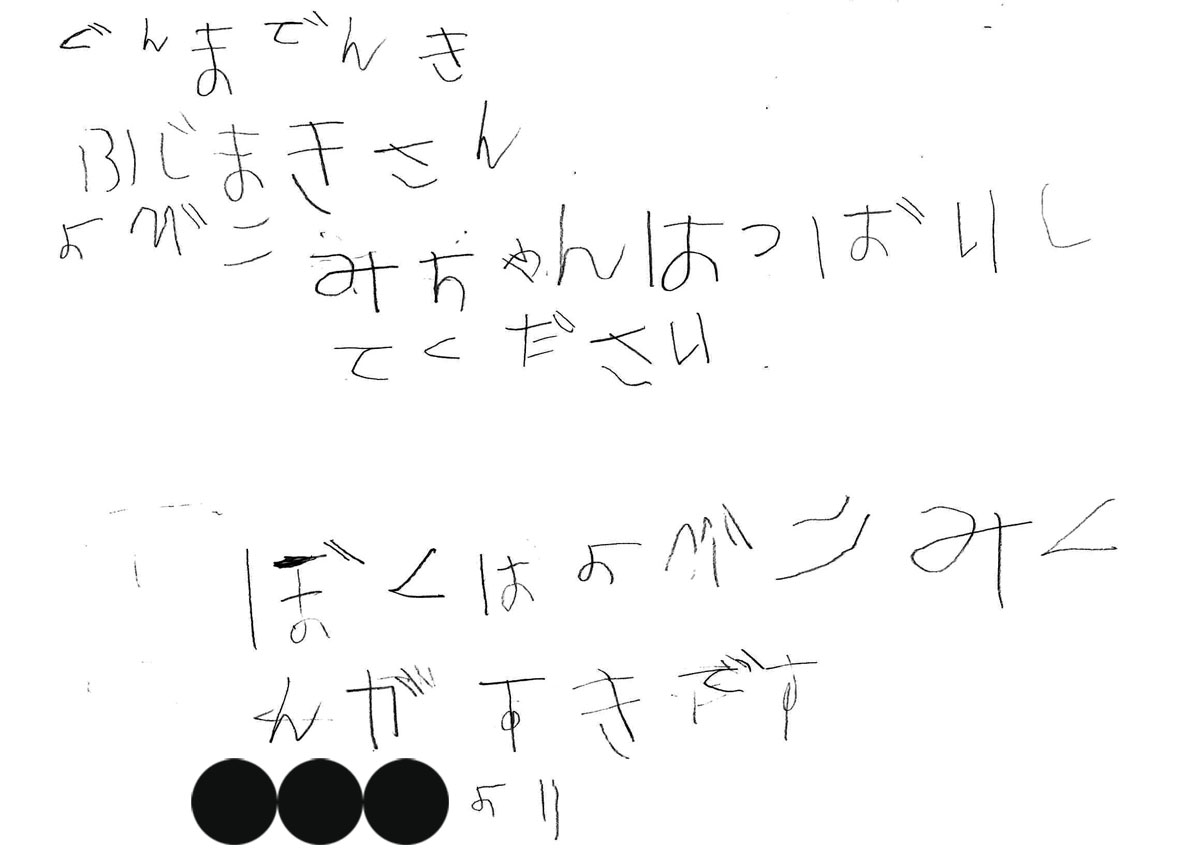 ぐんまでんき
ふじまきさん
よがンみちゃんはつばいし
てください
ぼくはよがンみく
んがすきです
より